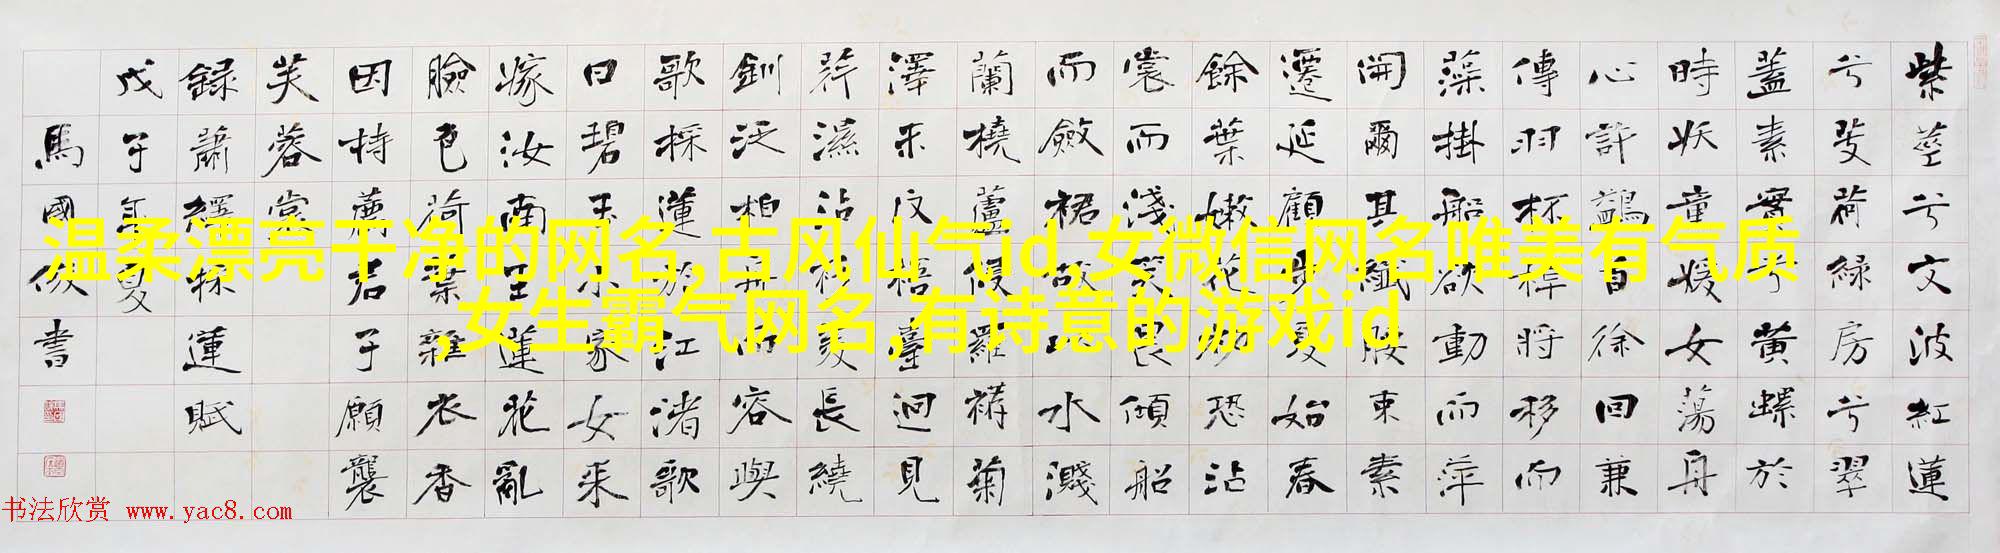 紫莖兮文波紅蓮
兮芰荷綠房兮翠
蓋素實兮黃螺於
時妖童媛女蕩舟
心許鷁首徐回兼
傳羽杯櫂將移而
藻掛船欲動而萍
開爾其纖腰束素
遷延顧步夏始春
餘葉嫩花初恐沾
裳而淺笑畏傾船
而斂裾故以水濺
蘭橈蘆侵羅褠菊
澤未反梧臺迥見
荇濕沾衫菱長繞
釧泛柏舟而容與
歌採蓮於江渚歌
曰碧玉小家女來
嫁汝南王蓮花亂
臉色荷葉雜衣香
因持薦君子願襲
芙蓉裳
錄蕭繹採蓮賦
戊子年夏
馬國俊書
温柔漂亮干净的网名,古风仙气id,女微信网名唯美有气质
,女生霸气网名,有诗意的游戏id
书法欣赏 www.yac8.com